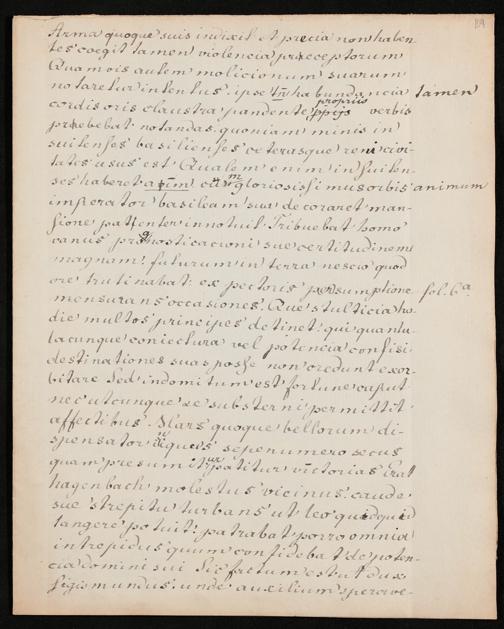 119
Arma quoque suis indixit et precia non haben-
tes coegit tamen violencia preceptorum
Quamvis autem molicionum suarum
notaretur intentus. ipse tn̄ habundancia tamen
cordis oris claustra pandente ppijs propriis verbis
prebebat notandas. quoniam minis in
suitenses basilienses veterasque reni civi-
tates usus est. Qualem enim in suiten-
ses haberet animum gloriosissimus orbis animum
imperator basileam sua decoraret man-
sione patienter innotuit. Tribuebat homo
vanus prognosticacioni sue certitudinem
magnam. futurum in terra nescio quod
ore trutinabat. ex pectoris presumptione fol. 6a.
mensurans occasiones. Que stultitia ho-
die multos principes detinet. qui quanta-
cunque coniectura vel potencia confisi
destinationes suas posse non credunt exor-
bitare. Sed indomitum est fortune caput
nec utcunque se substerni permittit
affectibus. Mars quoque bellorum di-
spensator sepenumero secus
quam presumitur patitur victorias. Erat
hagenbach molestus vicinus. caude
sue strepitu turbans ut leo quidquid
tangere potuit. patrabat porro omnia
intrepidus quum confidebat de poten-
cia domini sui. Sic factum est ut dux
Sigismundus. unde auxilium sperave-